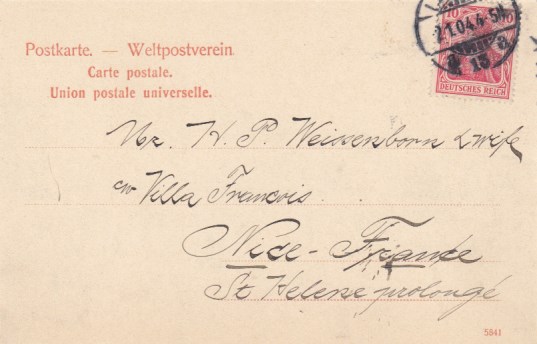 Postkarte. — Weltpostverein
Carte postale.
Union postale universelle.
10 10
DEUTSCHES REICH
2.1.04.4-5N.
Mr. H. P. Weissenborn & wife
c/o Villa François.
Nice - France
St Helene prolongé
5841